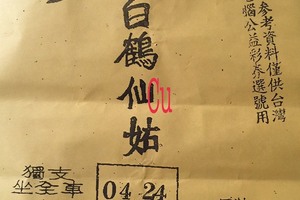 參考資料僅供台灣
腦公益彩券選號用
白鶴仙姑
Cu
獨支
坐全車
04 24